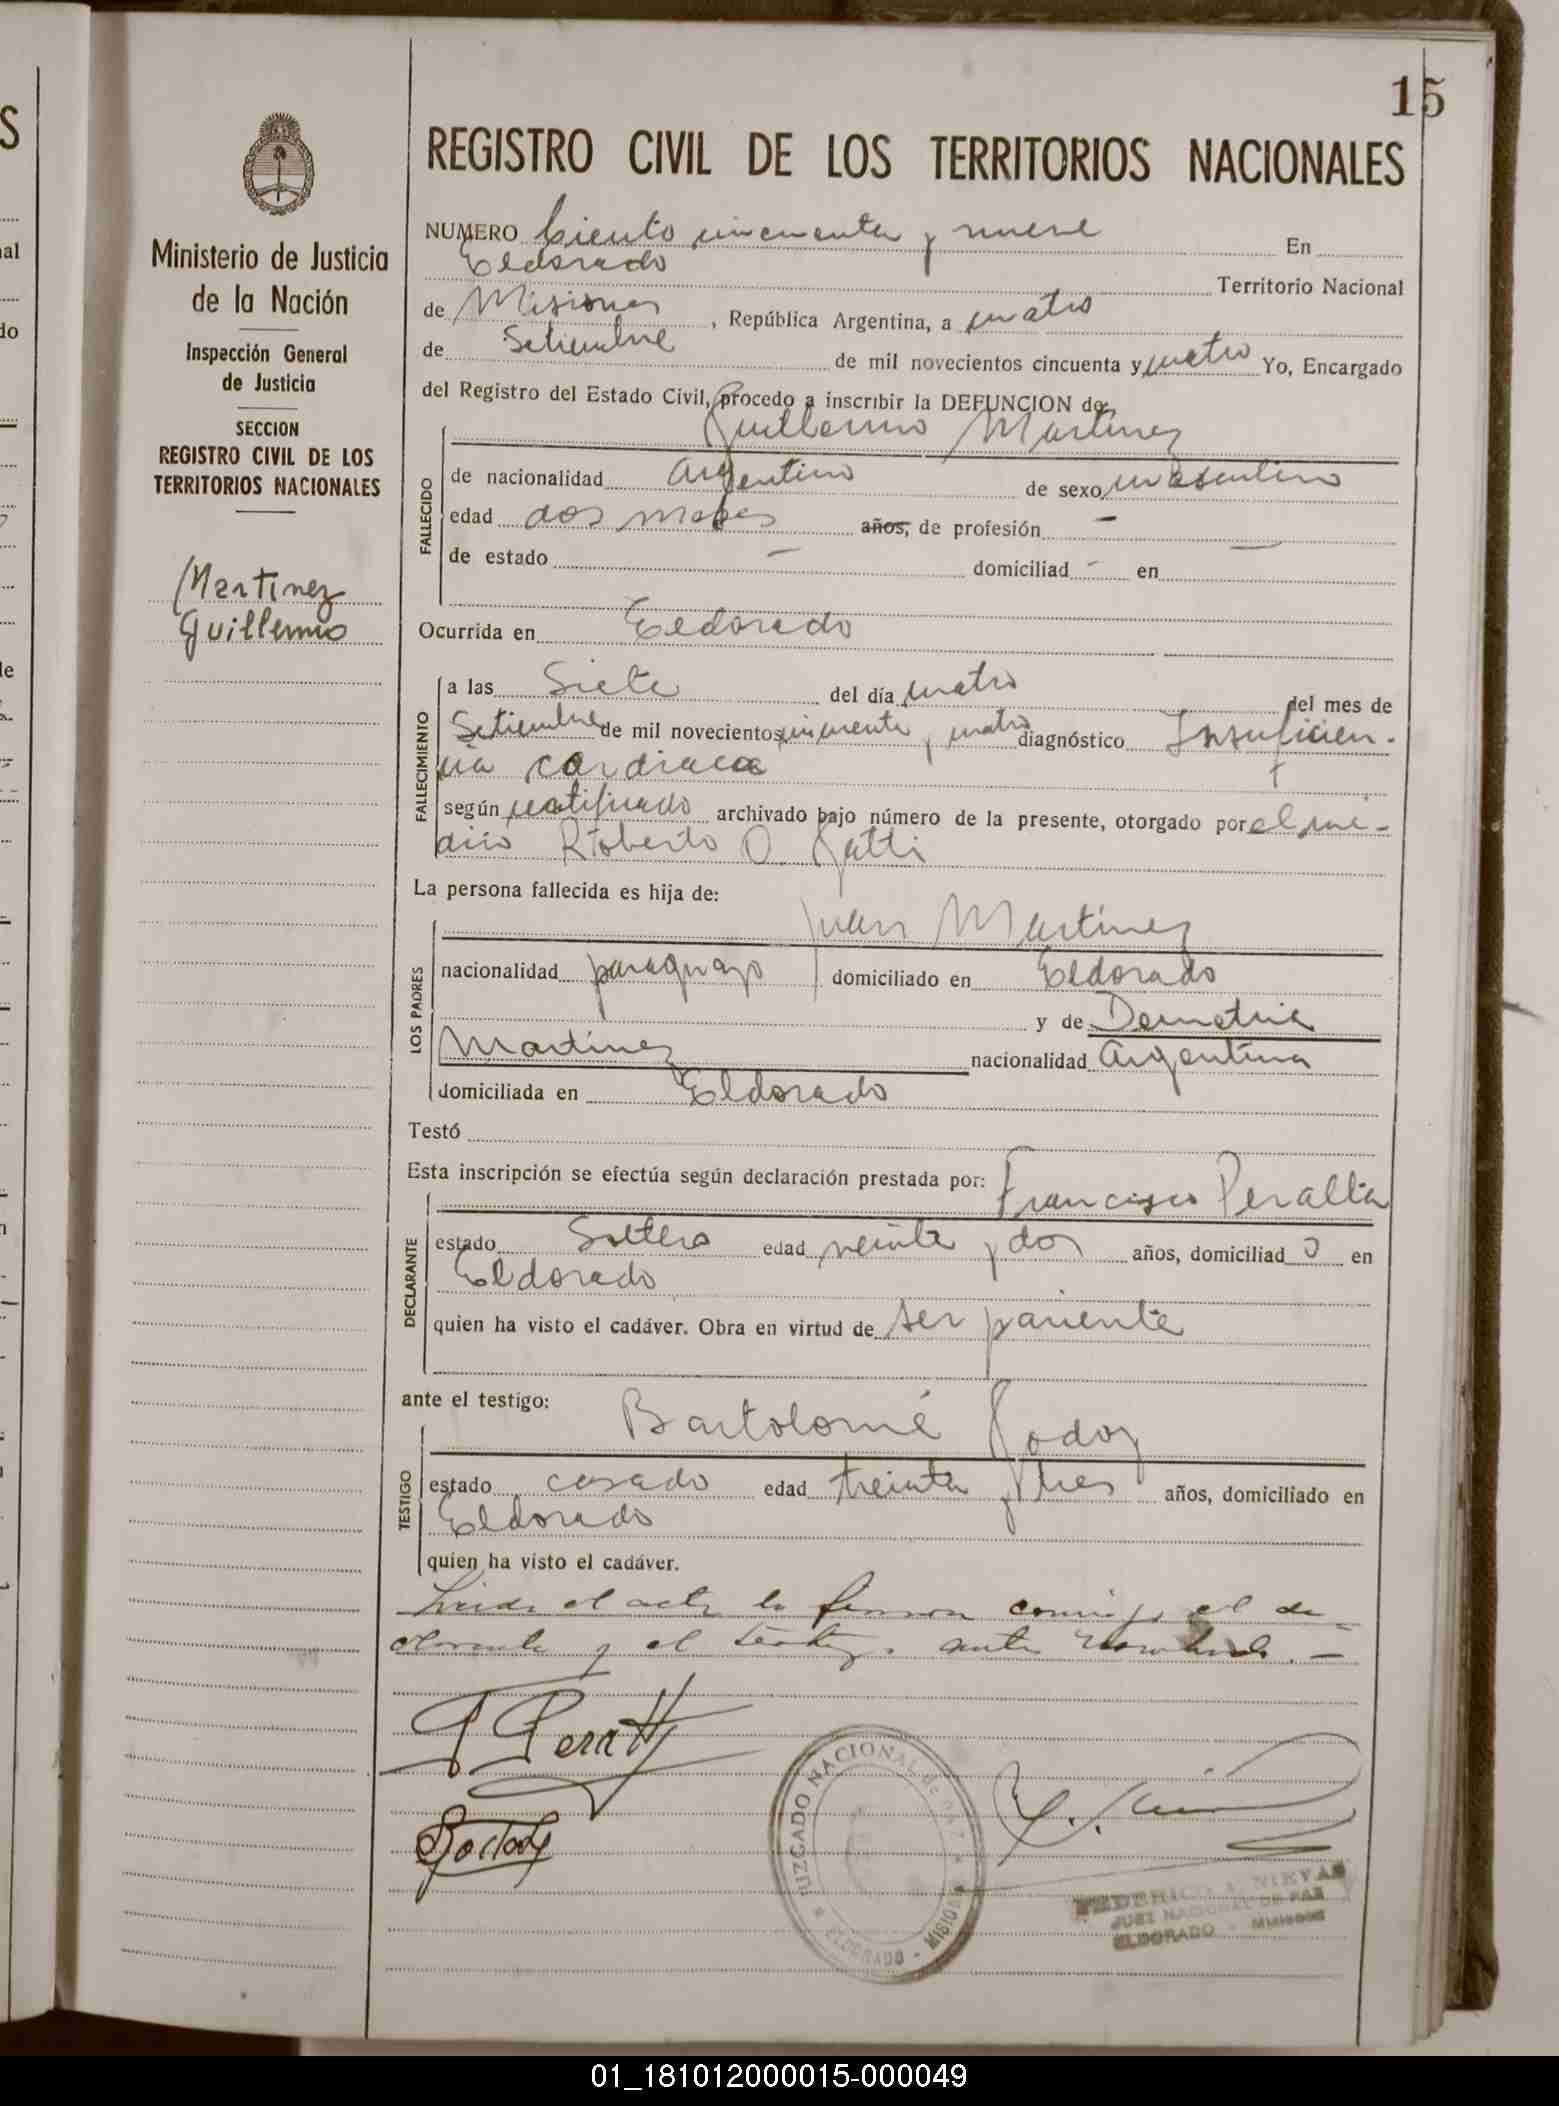 15
REGISTRO CIVIL DE LOS TERRITORIOS NACIONALES
Ministerio de Justicia
de la Nación
Inspección General
de Justicia
SECCION
REGISTRO CIVIL DE LOS
TERRITORIOS NACIONALES
Martinez
Guillermo
NUMERO Ciento cincuenta y nueve En
Eldorado Territorio Nacional
de Misiones, República Argentina, a cuatro
de Setiembre de mil novecientos cincuenta y cuatro Yo, Encargado
del Registro del Estado Civil, procedo a inscribir la DEFUNCION de
Guillermo Martinez
FALLECIDO
de nacionalidad Argentino de sexo masculino
edad dos meses años, de profesión -
de estado - domiciliad - en -
Ocurrida en Eldorado
FALLECIMIENTO
a las Siete del día cuatro del mes de
Setiembre de mil novecientos cincuenta y cuatro diagnóstico Insuficien-
cia cardiaca
según certificado archivado bajo número de la presente, otorgado por el mé-
dico Roberto O. Gatti
La persona fallecida es hija de:
LOS PADRES
Juan Martínez
nacionalidad paraguayo domiciliado en Eldorado
y de Demetria
Martínez nacionalidad Argentina
domiciliada en Eldorado
Testó
Esta inscripción se efectúa según declaración prestada por: Francisco Peralta
DECLARANTE
estado Soltero edad veinte y dos años, domiciliad o en
Eldorado
quien ha visto el cadáver. Obra en virtud de ser pariente
ante el testigo:
TESTIGO
Bartolomé Godoy
estado casado edad treinta y tres años, domiciliado en
Eldorado
quien ha visto el cadáver.
Leida el acta la firman conmigo el de-
clarante y el testigo
F Peralta
BGodoy
JUZGADO NACIONAL DE PAZ
ELDORADO - MISIONES
FEDERICO NIEVAS
JUEZ NACIONAL DE PAZ
ELDORADO - Misiones
01_181012000015-000049